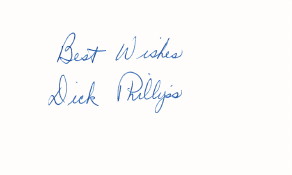 Best Wishes
Dick Phillips